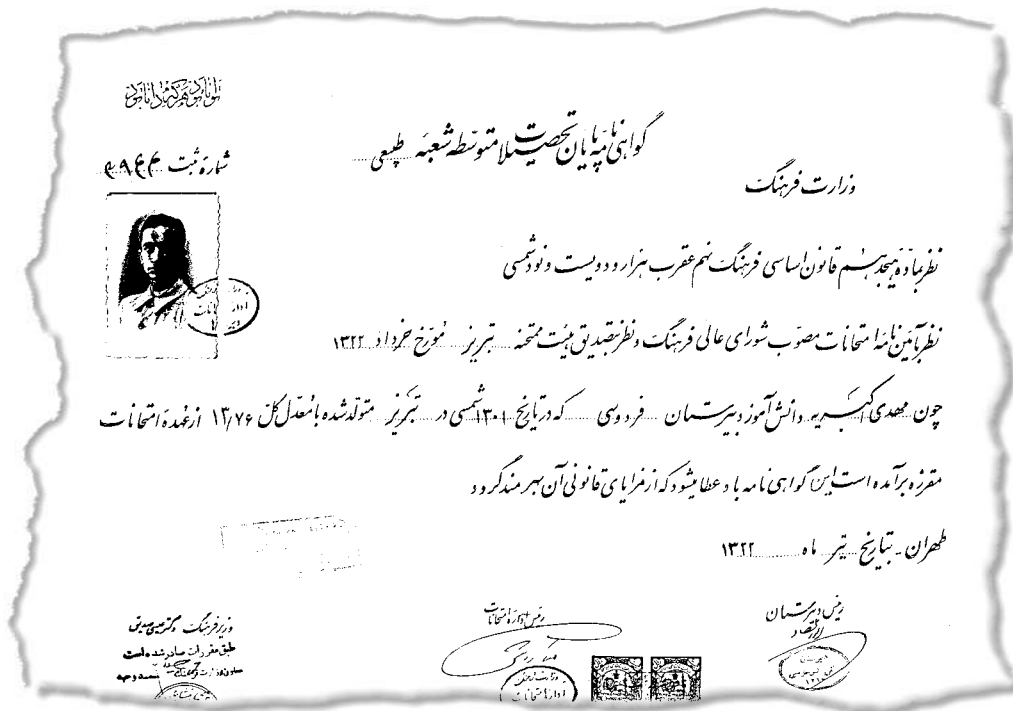 توانا بود هر که دانا بود
گواهی نامه پایان تحصیلات متوسطه شعبه طبیعی
شماره ثبت
وزارت فرهنگ
نظر بماده هیجدهم قانون اساسی فرهنگ نهم عقرب هزار و دویست و نود شمسی
نظر بآئین نامه امتحانات مصوب شورای عالی فرهنگ و نظر بتصدیق هیئت ممتحنه تبریز مورّخ خرداد ۱۳۲۲
چون مهدی دانش آموز دبیرستان فردوسی که در تاریخ ۱۳۰۱ شمسی در تبریز متولد شده با معدل کل ۱۳/۷۶ از عهده امتحانات
مقرره برآمده است این گواهی نامه باو عطا میشود که از مزایای قانونی آن بهرمند گردد
طهران - بتاریخ تیر ماه ۱۳۲۲
رئیس دبیرستان
رئیس اداره امتحانات
وزیر فرهنگ دکتر عیسی صدیق
طبق مقررات صادر شده است